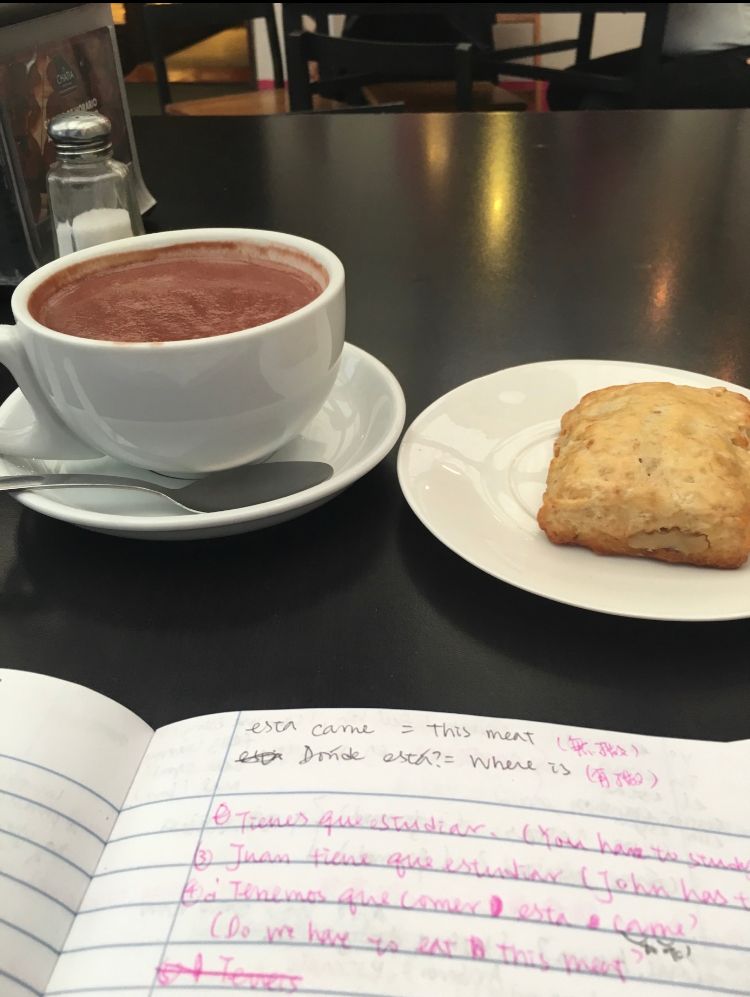 CHATIA
HORARIO
esta carne = this meat
Dónde está? = Where is
② Tienes que estudiar. (You have to study
③ Juan tiene que estudiar (John has t
④ ¿Tenemos que comer esta carne
(Do we have to eat this meat
Teneis